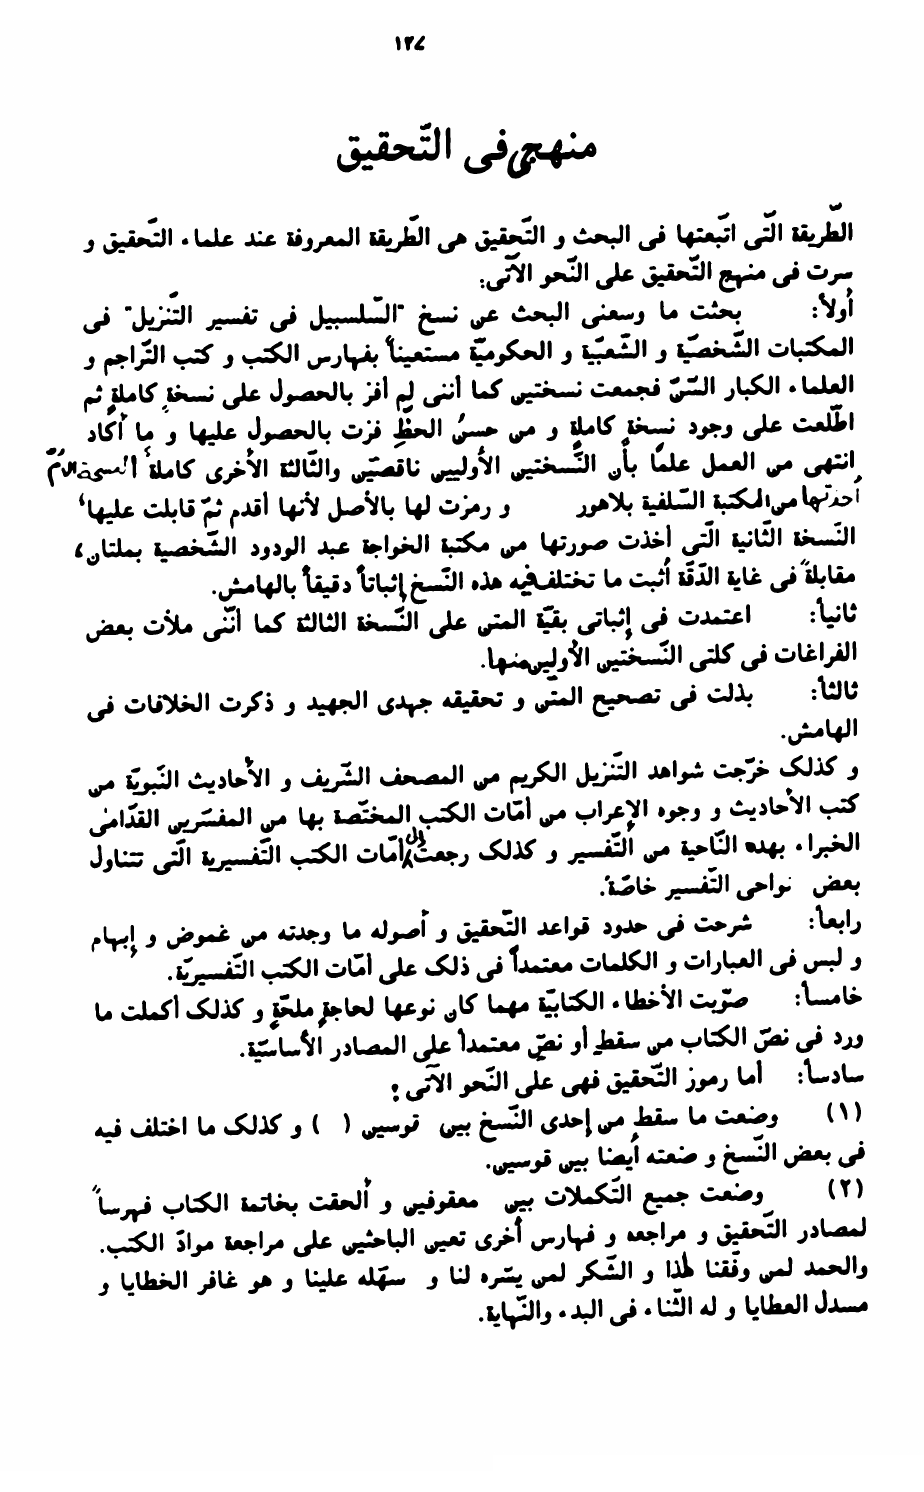 ١٢٧
منهجي فى التّحقيق
الطّريقة الّتى اتّبعتها فى البحث و التّحقيق هى الطّريقة المعروفة عند علماء التّحقيق و
سرت فى منهج التّحقيق على النّحو الآتى:
أولاً: بحثت ما وسعنى البحث عن نسخ "السّلسبيل فى تفسير التّنزيل" فى
المكتبات الشّخصيّة و الشّعبيّة و الحكوميّة مستعيناً بفهارس الكتب و كتب التّراجم و
العلماء الكبار السّنّ فجمعت نسختين كما أننى لم أفز بالحصول على نسخةٍ كاملةٍ ثم
اطّلعت على وجود نسخةٍ كاملةٍ و من حسنُ الحظّ فزت بالحصول عليها و ما أكاد
انتهى من العمل علمًا بأن النّسختين الأوليين ناقصتين والثّالثة الأخرى كاملة، النسخة الأمّ
أخذتها من المكتبة السّلفية بلاهور و رمزت لها بالأصل لأنها أقدم ثمّ قابلت عليها،
النّسخة الثانية الّتى أخذت صورتها من مكتبة الخواجة عبد الودود الشّخصية بملتان،
مقابلةً فى غاية الدّقّة أثبت ما تختلف فيه هذه النّسخ إثباتاً دقيقاً بالهامش.
ثانياً: اعتمدت فى إثباتى بقيّة المتن على النّسخة الثالثة كما أنّنى ملأت بعض
الفراغات فى كلتى النّسختين الأولين منها.
ثالثاً: بذلت فى تصحيح المتن و تحقيقه جهدى الجهيد و ذكرت الخلافات فى
الهامش.
و كذلك خرّجت شواهد التّنزيل الكريم من المصحف الشّريف و الأحاديث النّبويّة من
كتب الأحاديث و وجوه الإعراب من أمّات الكتب المختّصة بها من المفسّرين القدّامىٰ
الخبراء بهده النّاحية من التّفسير و كذلك رجعت إلى أمّات الكتب التّفسيرية الّتى تتناول
بعض نواحى التّفسير خاصّةً.
رابعاً: شرحت فى حدود قواعد التّحقيق و أصوله ما وجدته من غموض و إبهام
و لبس فى العبارات و الكلمات معتمداً فى ذلك على أمّات الكتب التّفسيريّة.
خامساً: صوّبت الأخطاء الكتابيّة مهما كان نوعها لحاجةٍ ملحّةٍ و كذلك أكملت ما
ورد فى نصّ الكتاب من سقطٍ أو نصٍّ معتمداً على المصادر الأساسيّة.
سادساً: أما رموز التّحقيق فهى على النّحو الآتى:
(١) وضعت ما سقط من إحدى النّسخ بين قوسين ( ) و كذلك ما اختلف فيه
فى بعض النّسخ و ضعته أيضا بين قوسين.
(٢) وضعت جميع التّكملات بين معقوفين و ألحقت بخاتمة الكتاب فهرساً
لمصادر التّحقيق و مراجعه و فهارس أخرى تعين الباحثين على مراجعة موادّ الكتب.
والحمد لمن وفّقنا لهذا و الشّكر لمن يسّره لنا و سهّله علينا و هو غافر الخطايا و
مسدل العطايا و له الثّناء فى البدء والنّهاية.